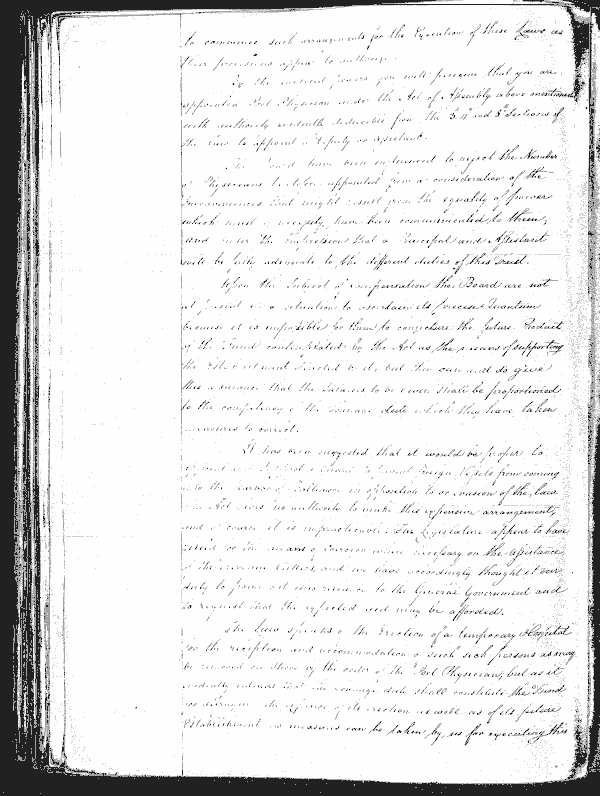 to commence such arrangements for the Execution of these Laws as
their provisions appear to authorize.
By the inclosed powers you will perceive that you are
appointed Port Physician under the Act of Assembly above mentioned
with authority evidently deducible from the 3d 4th and 5th Sections of
the Law to appoint a Deputy or Assistant.
The Board have been influenced to reject the Number
of Physicians heretofore appointed from a consideration of the
Inconveniences that might result from the equality of powers
which must necessarily have been communicated to them,
and under the Impression that a Principal and Assistant
will be fully adequate to the different duties of this Trust.
Upon the Subject of Compensation the Board are not
at present in a situation to ascertain its precise Quantum
because it is impossible for them to conjecture the future Product
of the Fund contemplated by the Act as the means of supporting
the Establishment directed by it, but they can and do give
this assurance that the Salaries to be given shall be proportioned
to the competency of the Tonnage duty which they have taken
measures to collect.
It has been suggested that it would be proper to
appoint and a Guard to Foreign Vessels from coming
into the Harbor of Baltimore in opposition to or evasion of the Law
the Act gives no authority to make this expensive arrangement,
and of course it is impracticable. The Legislature appear to have
relied for the means of Coercion where necessary on the Assistance
of the revenue Cutters and we have accordingly thought it our
duty to the General Government and
to request that the expected aid may be afforded.
The Law speaks of the Erection of a temporary Hospital
for the reception and accommodation of such sick persons as may
be removed on Shore by the order of the Port Physician, but as it
evidently intends that the Tonnage duty shall constitute the Fund
for defraying the expence of its erection as well as of its future
Establishment no measures can be taken by us for executing this